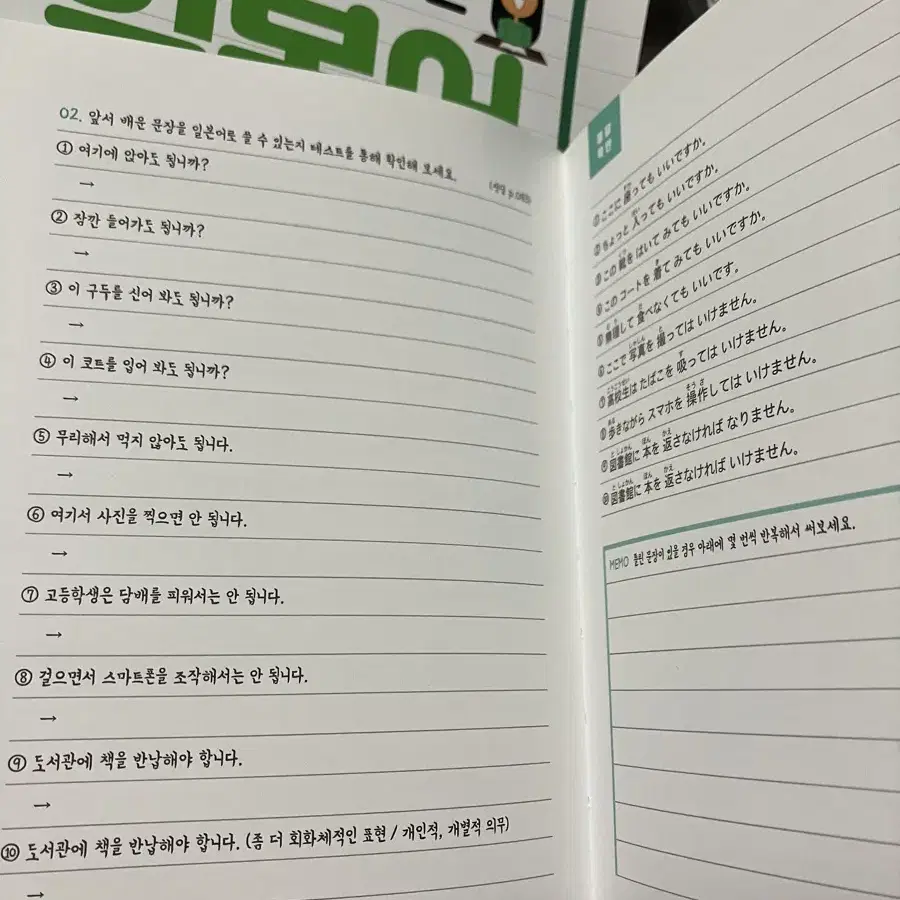 일본어
02. 앞서 배운 문장을 일본어로 쓸 수 있는지 테스트를 통해 확인해 보세요.
① 여기에 앉아도 됩니까?
→
② 잠깐 들어가도 됩니까?
→
③ 이 구두를 신어 봐도 됩니까?
→
④ 이 코트를 입어 봐도 됩니까?
→
⑤ 무리해서 먹지 않아도 됩니다.
→
⑥ 여기서 사진을 찍으면 안 됩니다.
→
⑦ 고등학생은 담배를 피워서는 안 됩니다.
→
⑧ 걸으면서 스마트폰을 조작해서는 안 됩니다.
→
⑨ 도서관에 책을 반납해야 합니다.
→
⑩ 도서관에 책을 반납해야 합니다. (좀 더 회화체적인 표현 / 개인적, 개별적 의무)
→
① ここに 座っても いいですか。
② ちょっと 入っても いいですか。
③ この 靴を はいて みても いいですか。
④ この コートを 着て みても いいですか。
⑤ 無理して 食べなくても いいです。
⑥ ここで 写真を 撮っては いけません。
⑦ 高校生は たばこを 吸っては いけません。
⑧ 歩きながら スマホを 操作しては いけません。
⑨ 図書館に 本を 返さなければ なりません。
⑩ 図書館に 本を 返さなければ いけません。
MEMO 틀린 문장이 있을 경우 아래에 몇 번씩 반복해서 써보세요.